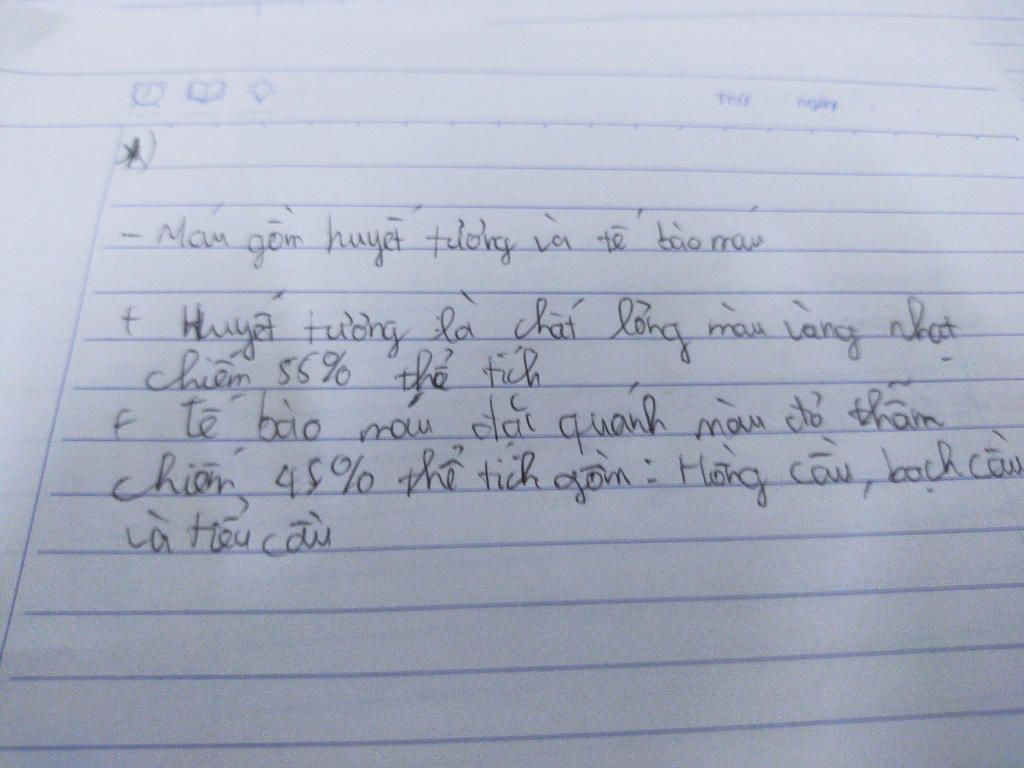 Thứ ngày
*)
- Máu gồm huyết tương và tế bào máu
+ Huyết tương là chất lỏng màu vàng nhạt
chiếm 55% thể tích
+ tế bào máu đặc quánh màu đỏ thẫm
chiếm 45% thể tích gồm: Hồng cầu, bạch cầu
và tiểu cầu